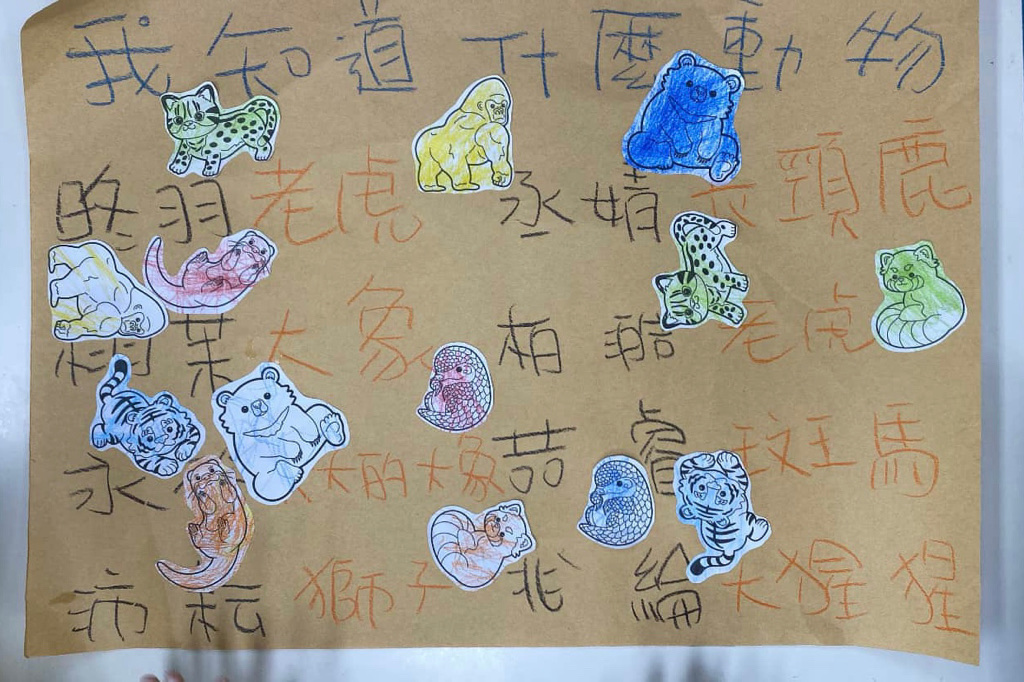 我知道什麼動物
羽 老虎 丞婧 長頸鹿
大象 柏澔 老虎
永 大大的大象 喆睿 斑馬
獅子 兆綸 大猩猩